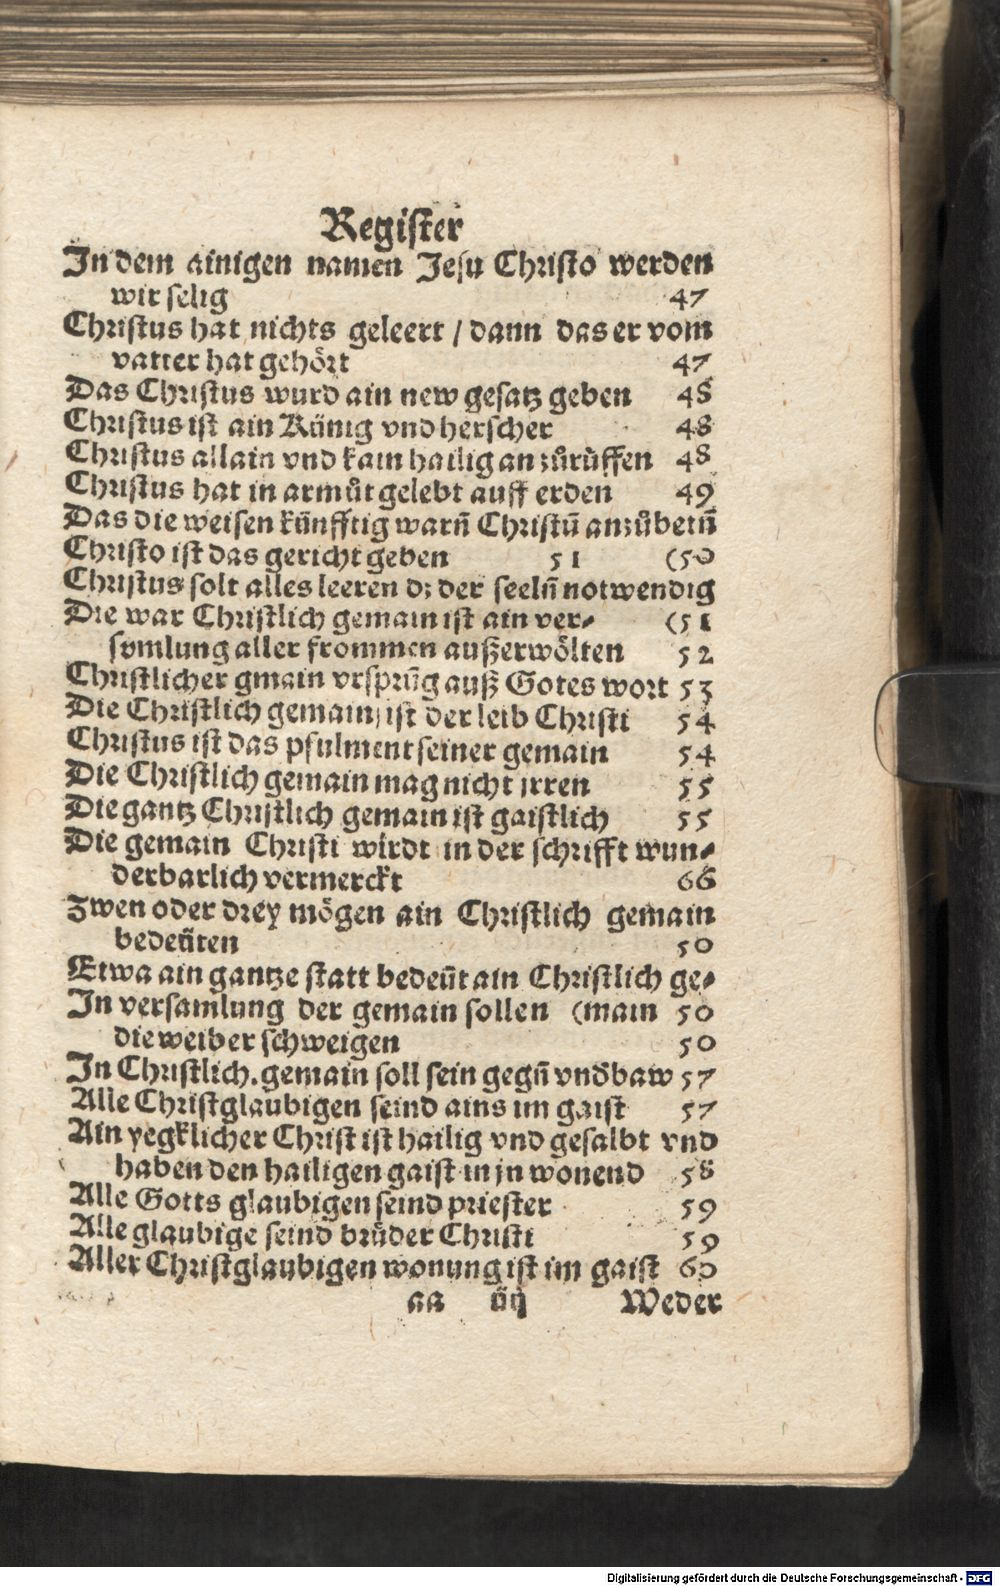 Register
In dem ainigen namen Jesu Christo werden
wir selig 47
Christus hat nichts geleert / dann das er vom
vatter hat gehört 47
Das Christus wurd ain new gesatz geben 48
Christus ist ain Künig vnd herscher 48
Christus allain vnd kain hailig anzůrůffen 48
Christus hat in armůt gelebt auff erden 49
Das die weisen künfftig warñ Christū anzůbetñ
Christo ist das gericht geben 51 (50
Christus solt alles leeren dz der seelñ notwendig
Die war Christlich gemain ist ain ver- (51
symlung aller frommen außerwölten 52
Christlicher gmain vrsprūg auß Gotes wort 53
Die Christlich gemain ist der leib Christi 54
Christus ist das pfulment seiner gemain 54
Die Christlich gemain mag nicht jrren 55
Die gantz Christlich gemain ist gaistlich 55
Die gemain Christi wirdt in der schrifft wun-
derbarlich vermerckt 66
Zwen oder drey mögen ain Christlich gemain
bedeüten 50
Etwa ain gantze statt bedeüt ain Christlich ge-
In versamlung der gemain sollen (main 50
die weiber schweigen 50
In Christlich. gemain soll sein gegñ vndbaw 57
Alle Christglaubigen seind ains im gaist 57
Ain yegklicher Christ ist hailig vnd gesalbt vnd
haben den hailigen gaist in jn wonend 58
Alle Gotts glaubigen seind priester 59
Alle glaubige seind brüder Christi 59
Aller Christglaubigen wonung ist im gaist 60
aa iij Weder
Digitalisierung gefördert durch die Deutsche Forschungsgemeinschaft - DFG